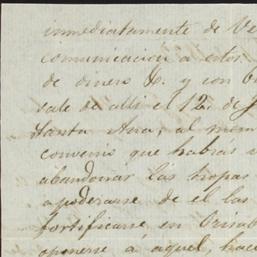 inmediatamente de Ve
comunicacion a estos
de dinero &. y con
sale de alli el 12 de J
Santa Ana, al mom
convenio que habias
abandonar las tropas
apoderarse de el las
fortificarse en Orizab
oponerse á aquel, hace